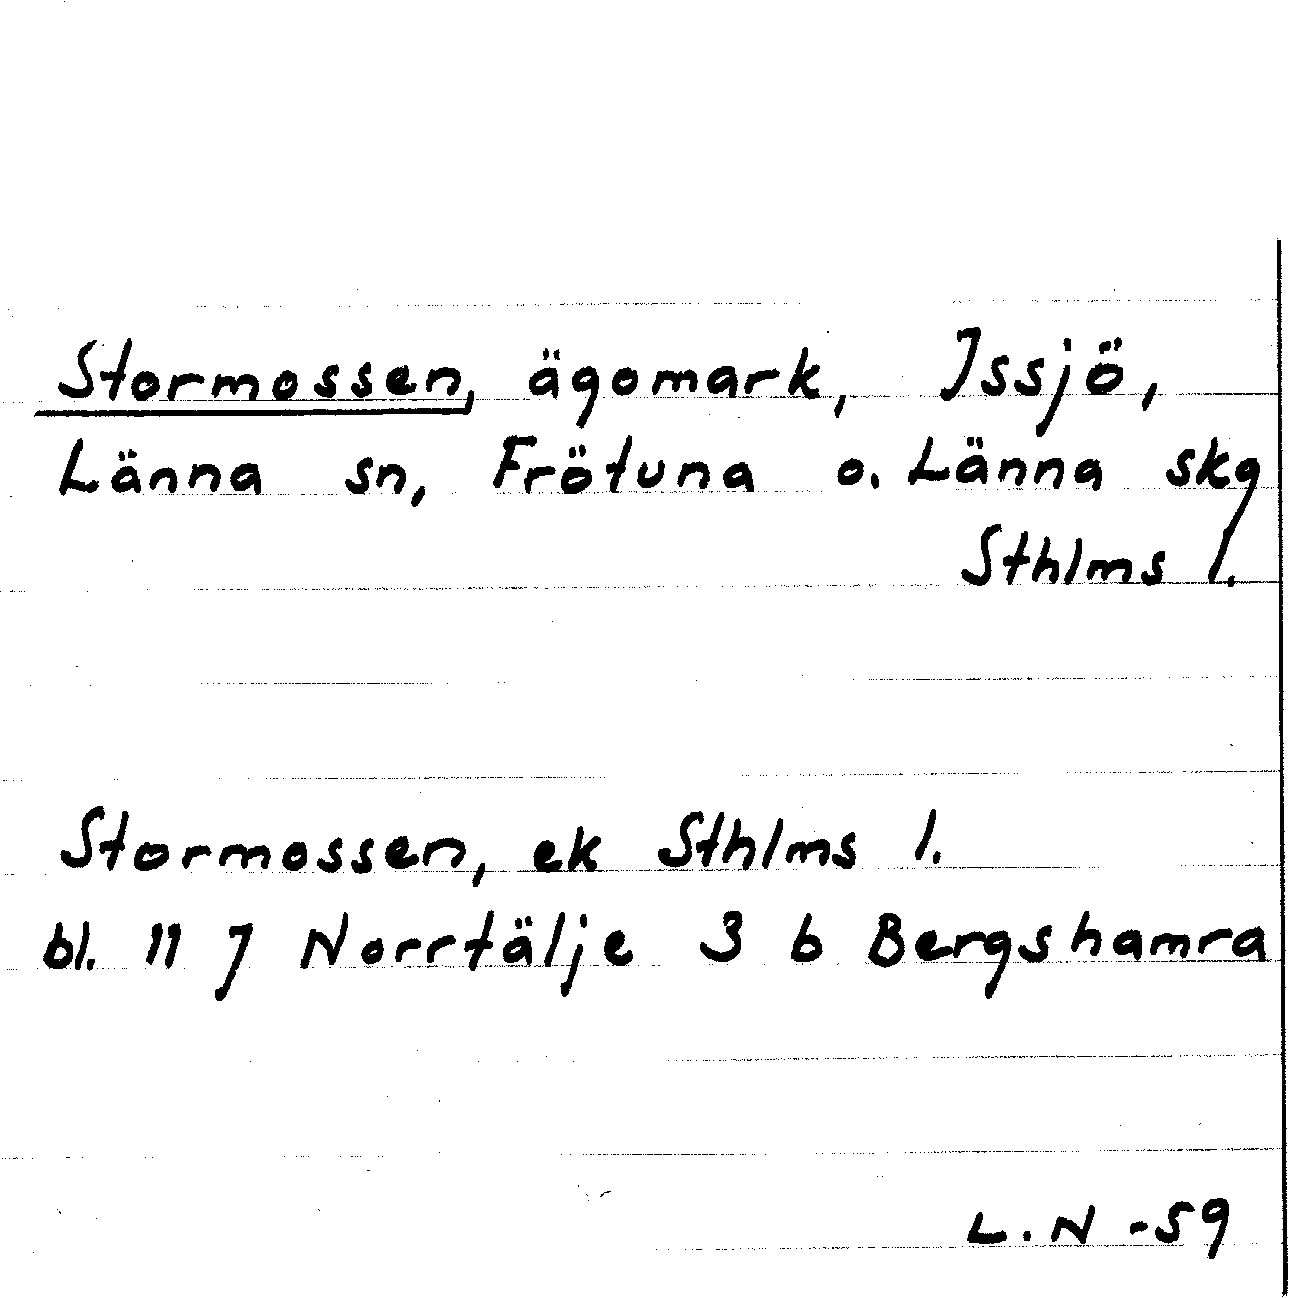 Stormossen, ägomark, Issjö,
Länna sn, Frötuna o. Länna skg
Sthlms l.
Stormossen, ek Sthlms l.
bl. 11 J Norrtälje 3 b Bergshamra
L.N -59